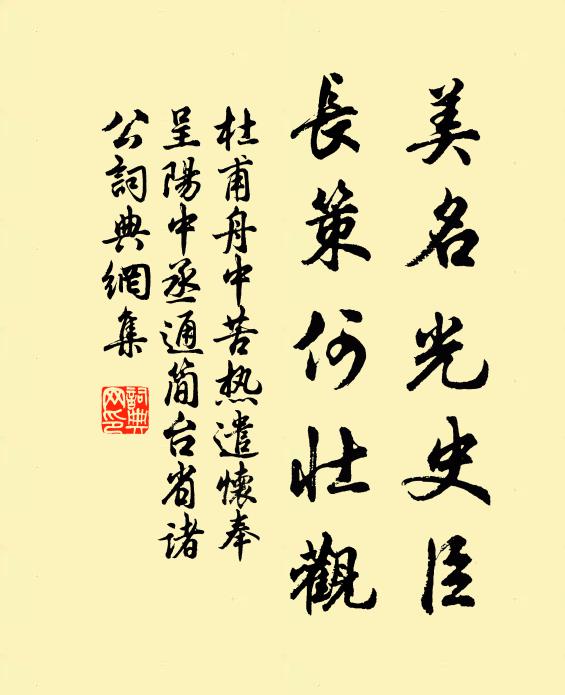 美名光史臣
長策何壯觀
杜甫舟中苦热遣懷奉
呈陽中丞通簡台省诸
公詞典網集
詞典
网印